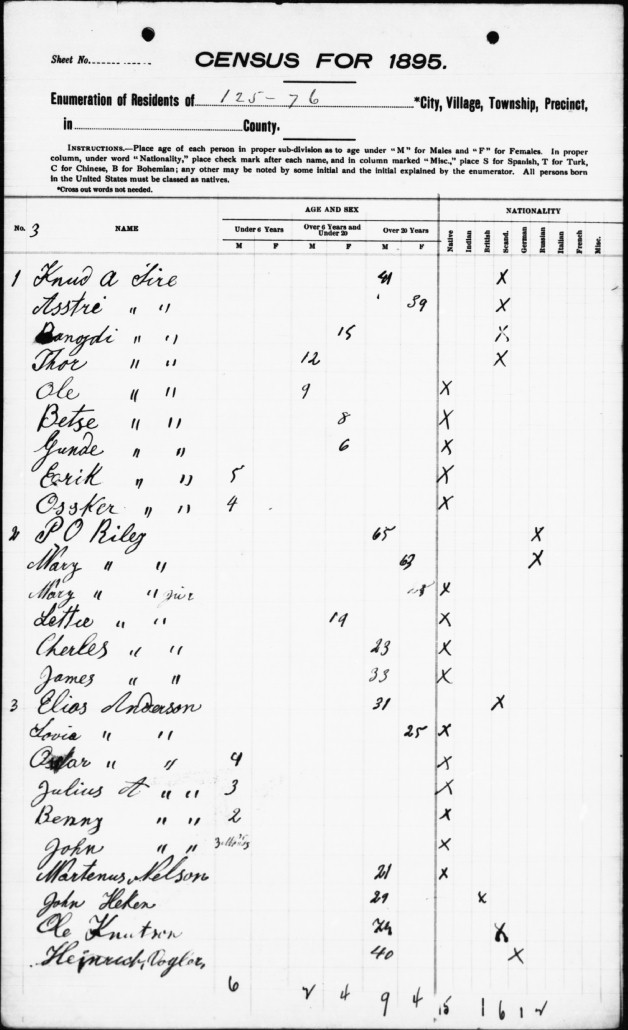 Sheet No.
CENSUS FOR 1895.
Enumeration of Residents of 125-76 *City, Village, Township, Precinct,
in County.
INSTRUCTIONS.—Place age of each person in proper sub-division as to age under "M" for Males and "F" for Females. In proper
column, under word "Nationality," place check mark after each name, and in column marked "Misc.," place S for Spanish, T for Turk,
C for Chinese, B for Bohemian; any other may be noted by some initial and the initial explained by the enumerator. All persons born
in the United States must be classed as natives.
*Cross out words not needed.
AGE AND SEX NATIONALITY
No. 3 NAME Under 6 Years Over 6 Years and Under 20 Over 20 Years Native Indian British Scand. German Russian Italian French Misc.
M F M F M F
1 Knud A Sire 41 X
Asstri " " 39 X
" " 15 X
Thor " " 12 X
Ole " " 9 X
Betse " " 8 X
Gunde " " 6 X
Erik " " 5 X
Ossker " " 4 X
2 P O Riley 65 X
Mary " " 63 X
Mary " " X
Lettie " " 19 X
Cherles " " 23 X
James " " 33 X
3 Elias Anderson 31 X
Lovie " " 25 X
" " 4 X
Julius A " " 3 X
Benny " " 2 X
John " " X
Martenus Nelson 21 X
John Heken X
Ole Knutson X
Heinrich Vogler 40 X
6 2 4 9 4 15 1 6 1 2